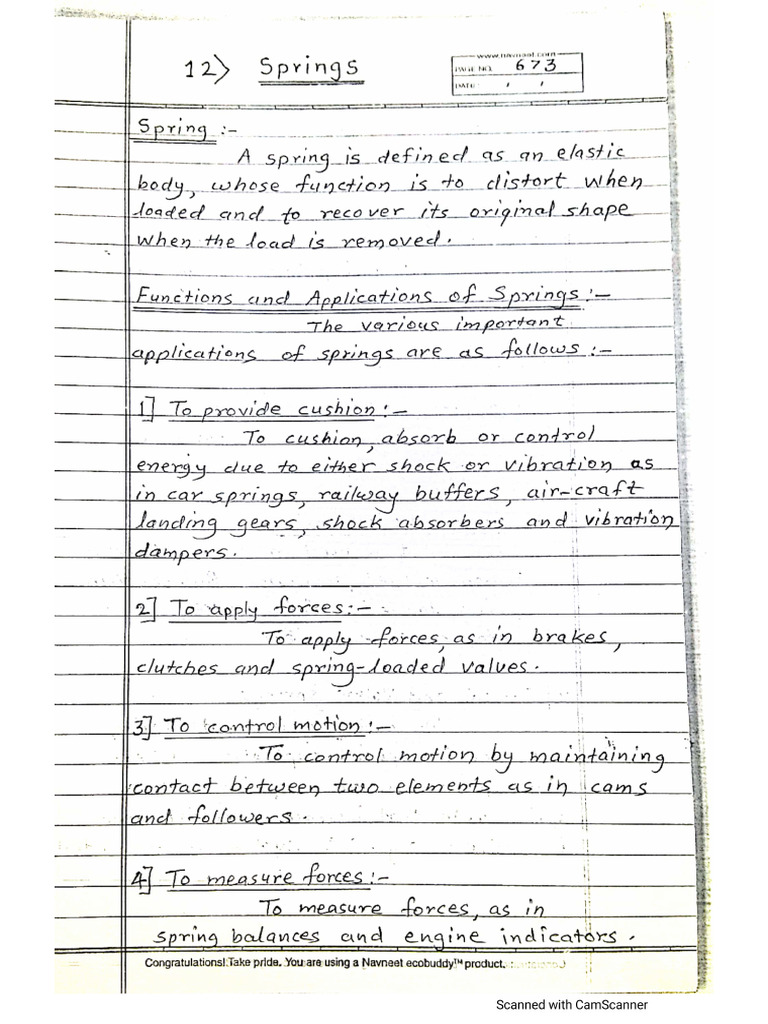 www.navneet.com
12) Springs
PAGE NO. 673
DATE: / /
Spring :-
A spring is defined as an elastic
body, whose function is to distort when
loaded and to recover its original shape
when the load is removed.
Functions and Applications of Springs :-
The various important
applications of springs are as follows :-
1] To provide cushion :-
To cushion, absorb or control
energy due to either shock or vibration as
in car springs, railway buffers, air-craft
landing gears, shock absorbers and vibration
dampers.
2] To apply forces :-
To apply forces, as in brakes,
clutches and spring-loaded valves.
3] To control motion :-
To control motion by maintaining
contact between two elements as in cams
and followers.
4] To measure forces :-
To measure forces, as in
spring balances and engine indicators.
Congratulations! Take pride. You are using a Navneet ecobuddy™ product.
Scanned with CamScanner